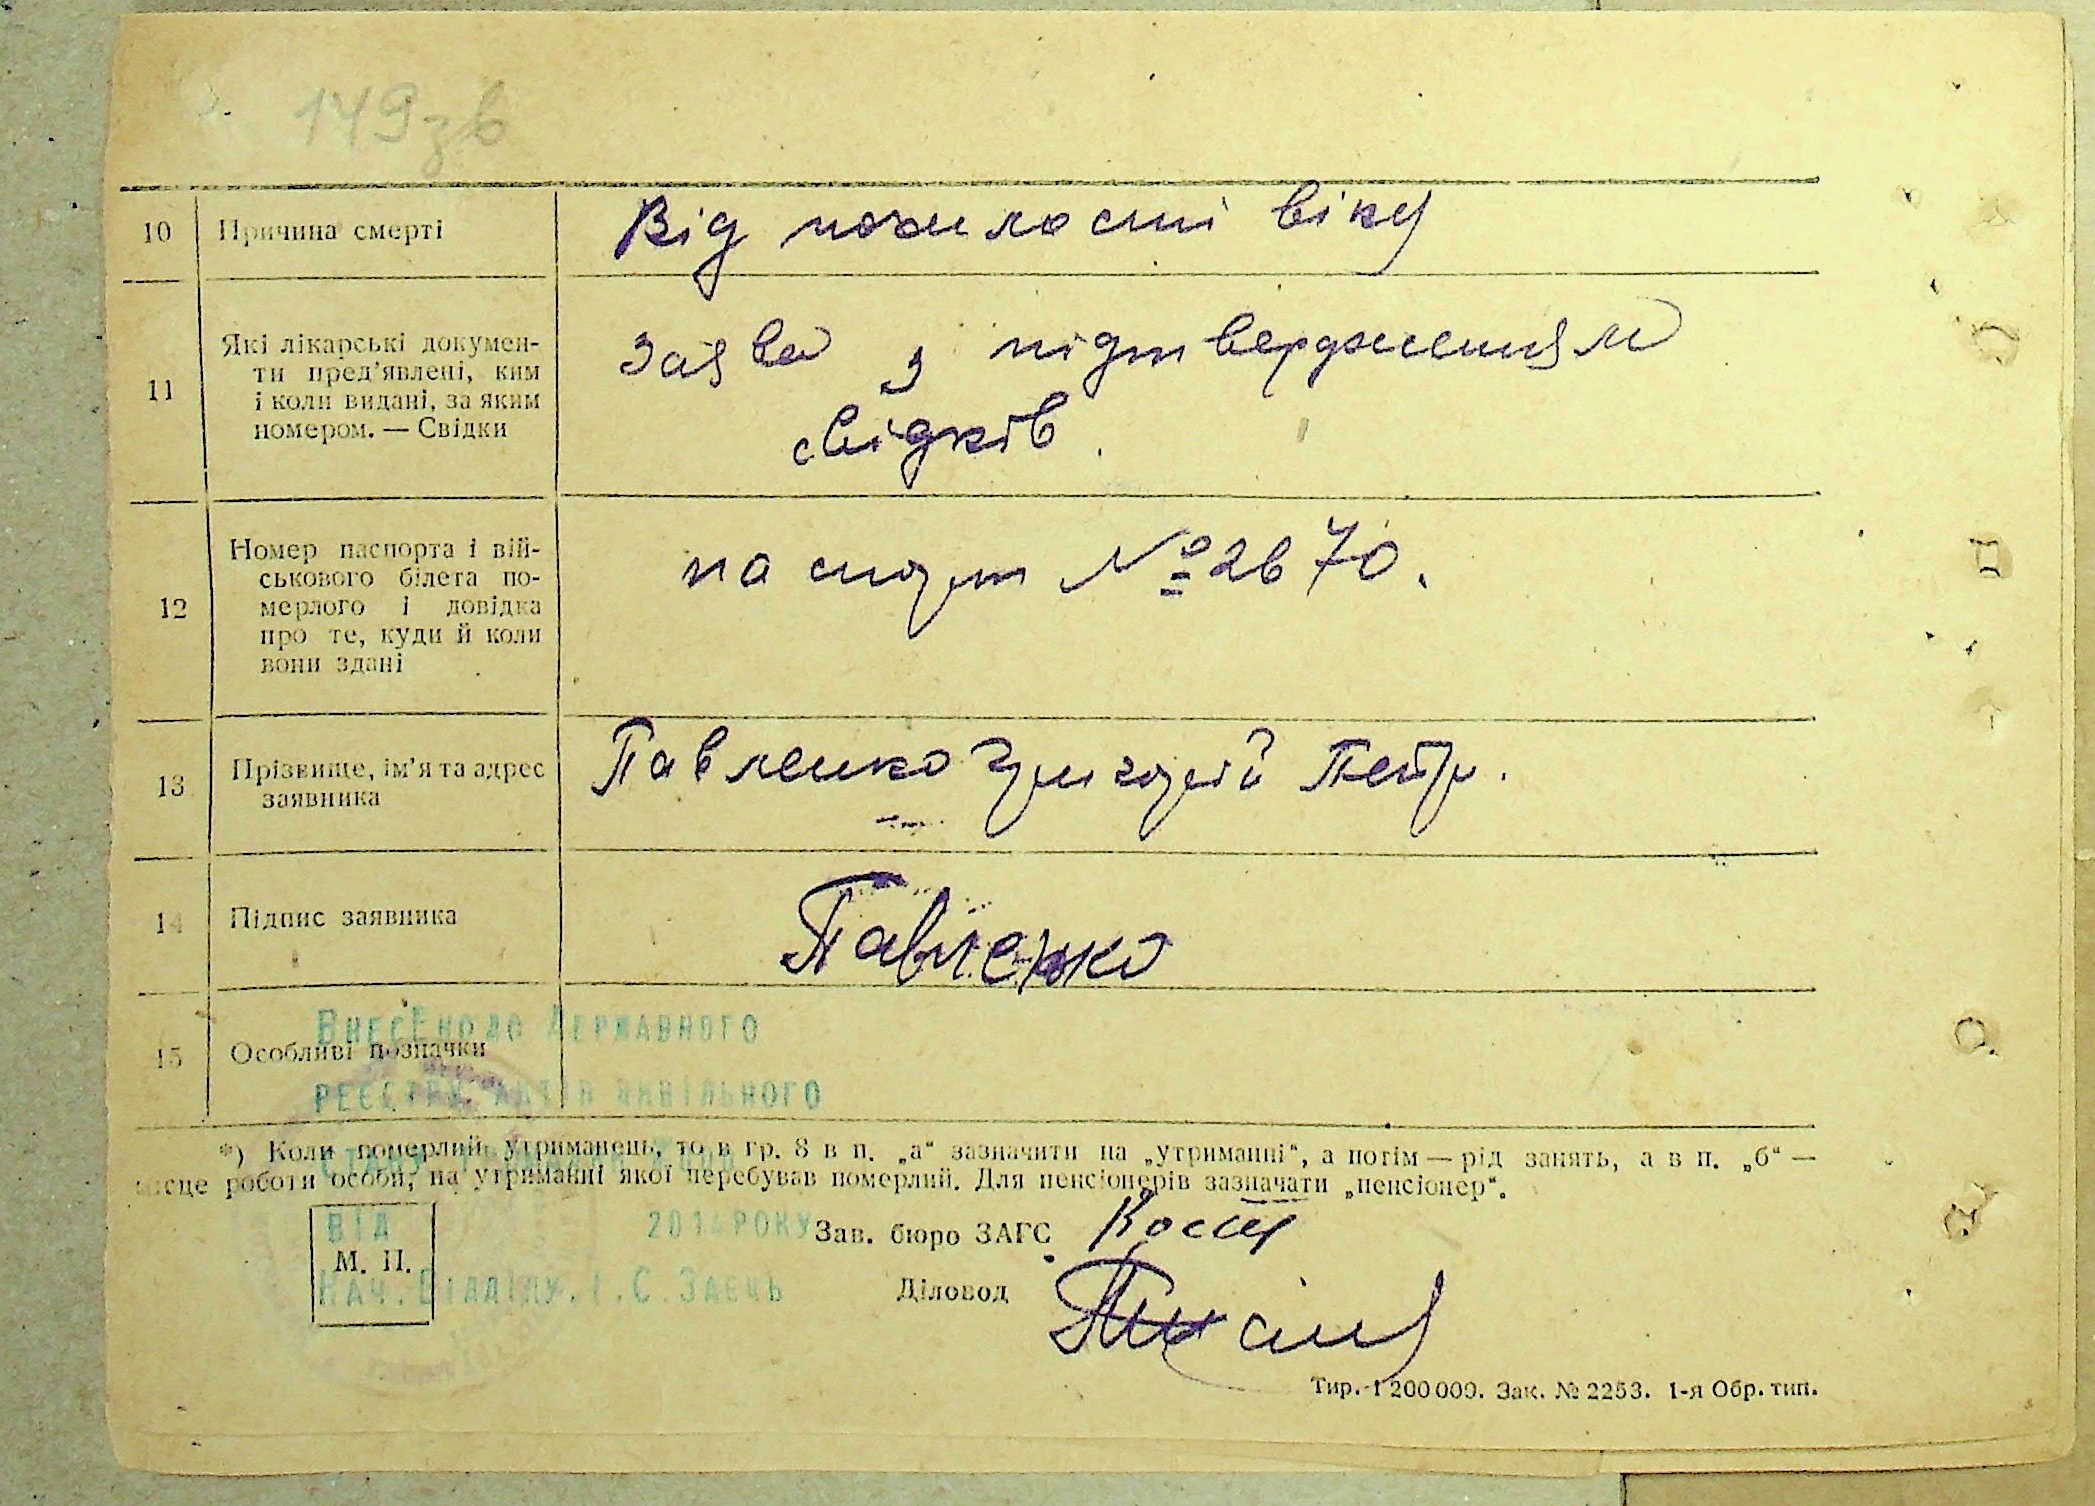 149зв
10 Причина смерті Від похилості віку
11 Які лікарські докумен-
ти пред'явлені, ким
і коли видані, за яким
номером. — Свідки
Заява з підтвердженням
свідків.
12 Номер паспорта і вій-
ськового білета по-
мерлого і довідка
про те, куди й коли
вони здані
паспорт № 2670.
13 Прізвище, ім'я та адрес
заявника
Павленко Григорій Петр.
14 Підпис заявника Павленко
15 Особливі позначки
Внесено до Державного
реєстру актів цивільного
*) Коли померлий утриманець, то в гр. 8 в п. „а“ зазначити на „утриманні“, а потім — рід занять, а в п. „б“ —
місце роботи особи, на утриманні якої перебував померлий. Для пенсіонерів зазначати „пенсіонер“.
від 2014 року
Зав. бюро ЗАГС
М. П.
Нач. Відділу. І. С. Заєць
Діловод
Тир. 1 200 000. Зак. № 2253. 1-я Обр. тип.